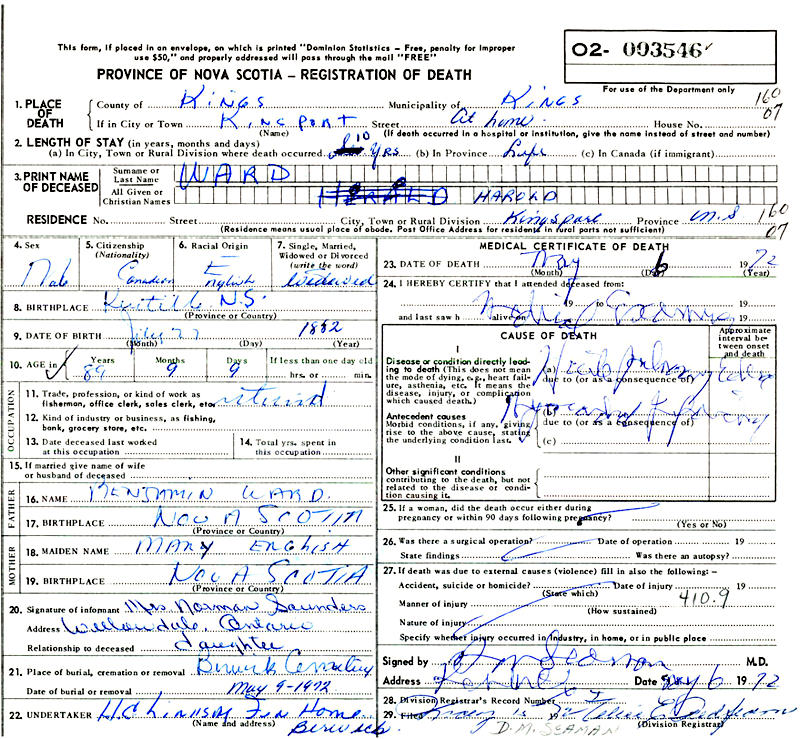 This form, if placed in an envelope, on which is printed "Dominion Statistics – Free, penalty for improper
use $50," and properly addressed will pass through the mail "FREE"
O2- 093546
For use of the Department only
PROVINCE OF NOVA SCOTIA – REGISTRATION OF DEATH
160
07
1. PLACE OF DEATH County of Kings Municipality of Kings
If in City or Town Kingsport Street At home House No.
(Name) (If death occurred in a hospital or institution, give the name instead of street and number)
2. LENGTH OF STAY (in years, months and days)
(a) In City, Town or Rural Division where death occurred 10 yrs (b) In Province Life (c) In Canada (if immigrant)
3. PRINT NAME OF DECEASED Surname or Last Name WARD
All Given or Christian Names HAROLD
RESIDENCE No. Street City, Town or Rural Division Kingsport Province N.S 160
07
(Residence means usual place of abode. Post Office Address for residents in rural parts not sufficient)
4. Sex Male
5. Citizenship (Nationality) Canadian
6. Racial Origin English
7. Single, Married, Widowed or Divorced (write the word) Widowed
8. BIRTHPLACE N.S.
(Province or Country)
9. DATE OF BIRTH July 27 1882
(Month) (Day) (Year)
10. AGE in Years 89 Months 9 Days 9 If less than one day old
hrs. or min.
OCCUPATION
11. Trade, profession, or kind of work as fishermen, office clerk, soles clerk, etc. retired
12. Kind of industry or business, as fishing, bank, grocery store, etc.
13. Date deceased last worked at this occupation
14. Total yrs. spent in this occupation
15. If married give name of wife or husband of deceased
FATHER
16. NAME BENJAMIN WARD
17. BIRTHPLACE NOVA SCOTIA
(Province or Country)
MOTHER
18. MAIDEN NAME MARY ENGLISH
19. BIRTHPLACE NOVA SCOTIA
(Province or Country)
20. Signature of informant Mrs Norman Saunders
Address Willowdale, Ontario
Relationship to deceased daughter
21. Place of burial, cremation or removal Berwick Cemetery
Date of burial or removal May 9-1972
22. UNDERTAKER H.C Lindsay Fun Home
(Name and address) Berwick
MEDICAL CERTIFICATE OF DEATH
23. DATE OF DEATH May 6 1972
(Month) (Day) (Year)
24. I HEREBY CERTIFY that I attended deceased from:
19 to 19
and last saw h alive on 19
CAUSE OF DEATH
Approximate interval between onset and death
I
Disease or condition directly leading to death (This does not mean the mode of dying, e.g., heart failure, asthenia, etc. It means the disease, injury, or complication which caused death.)
(a)
due to (or as a consequence of)
Antecedent causes
Morbid conditions, if any, giving rise to the above cause, stating the underlying condition last.
(b)
due to (or as a consequence of)
(c)
II
Other significant conditions
contributing to the death, but not related to the disease or condition causing it.
25. If a woman, did the death occur either during pregnancy or within 90 days following pregnancy?
(Yes or No)
26. Was there a surgical operation? Date of operation 19
State findings Was there an autopsy?
27. If death was due to external causes (violence) fill in also the following: –
Accident, suicide or homicide? Date of injury 19
(State which) 410.9
Manner of injury
(How sustained)
Nature of injury
Specify whether injury occurred in industry, in home, or in public place
Signed by M.D.
Address Date May 6 1972
28. Division Registrar's Record Number
29. Filed 19
D.M. SEAMAN (Division Registrar)